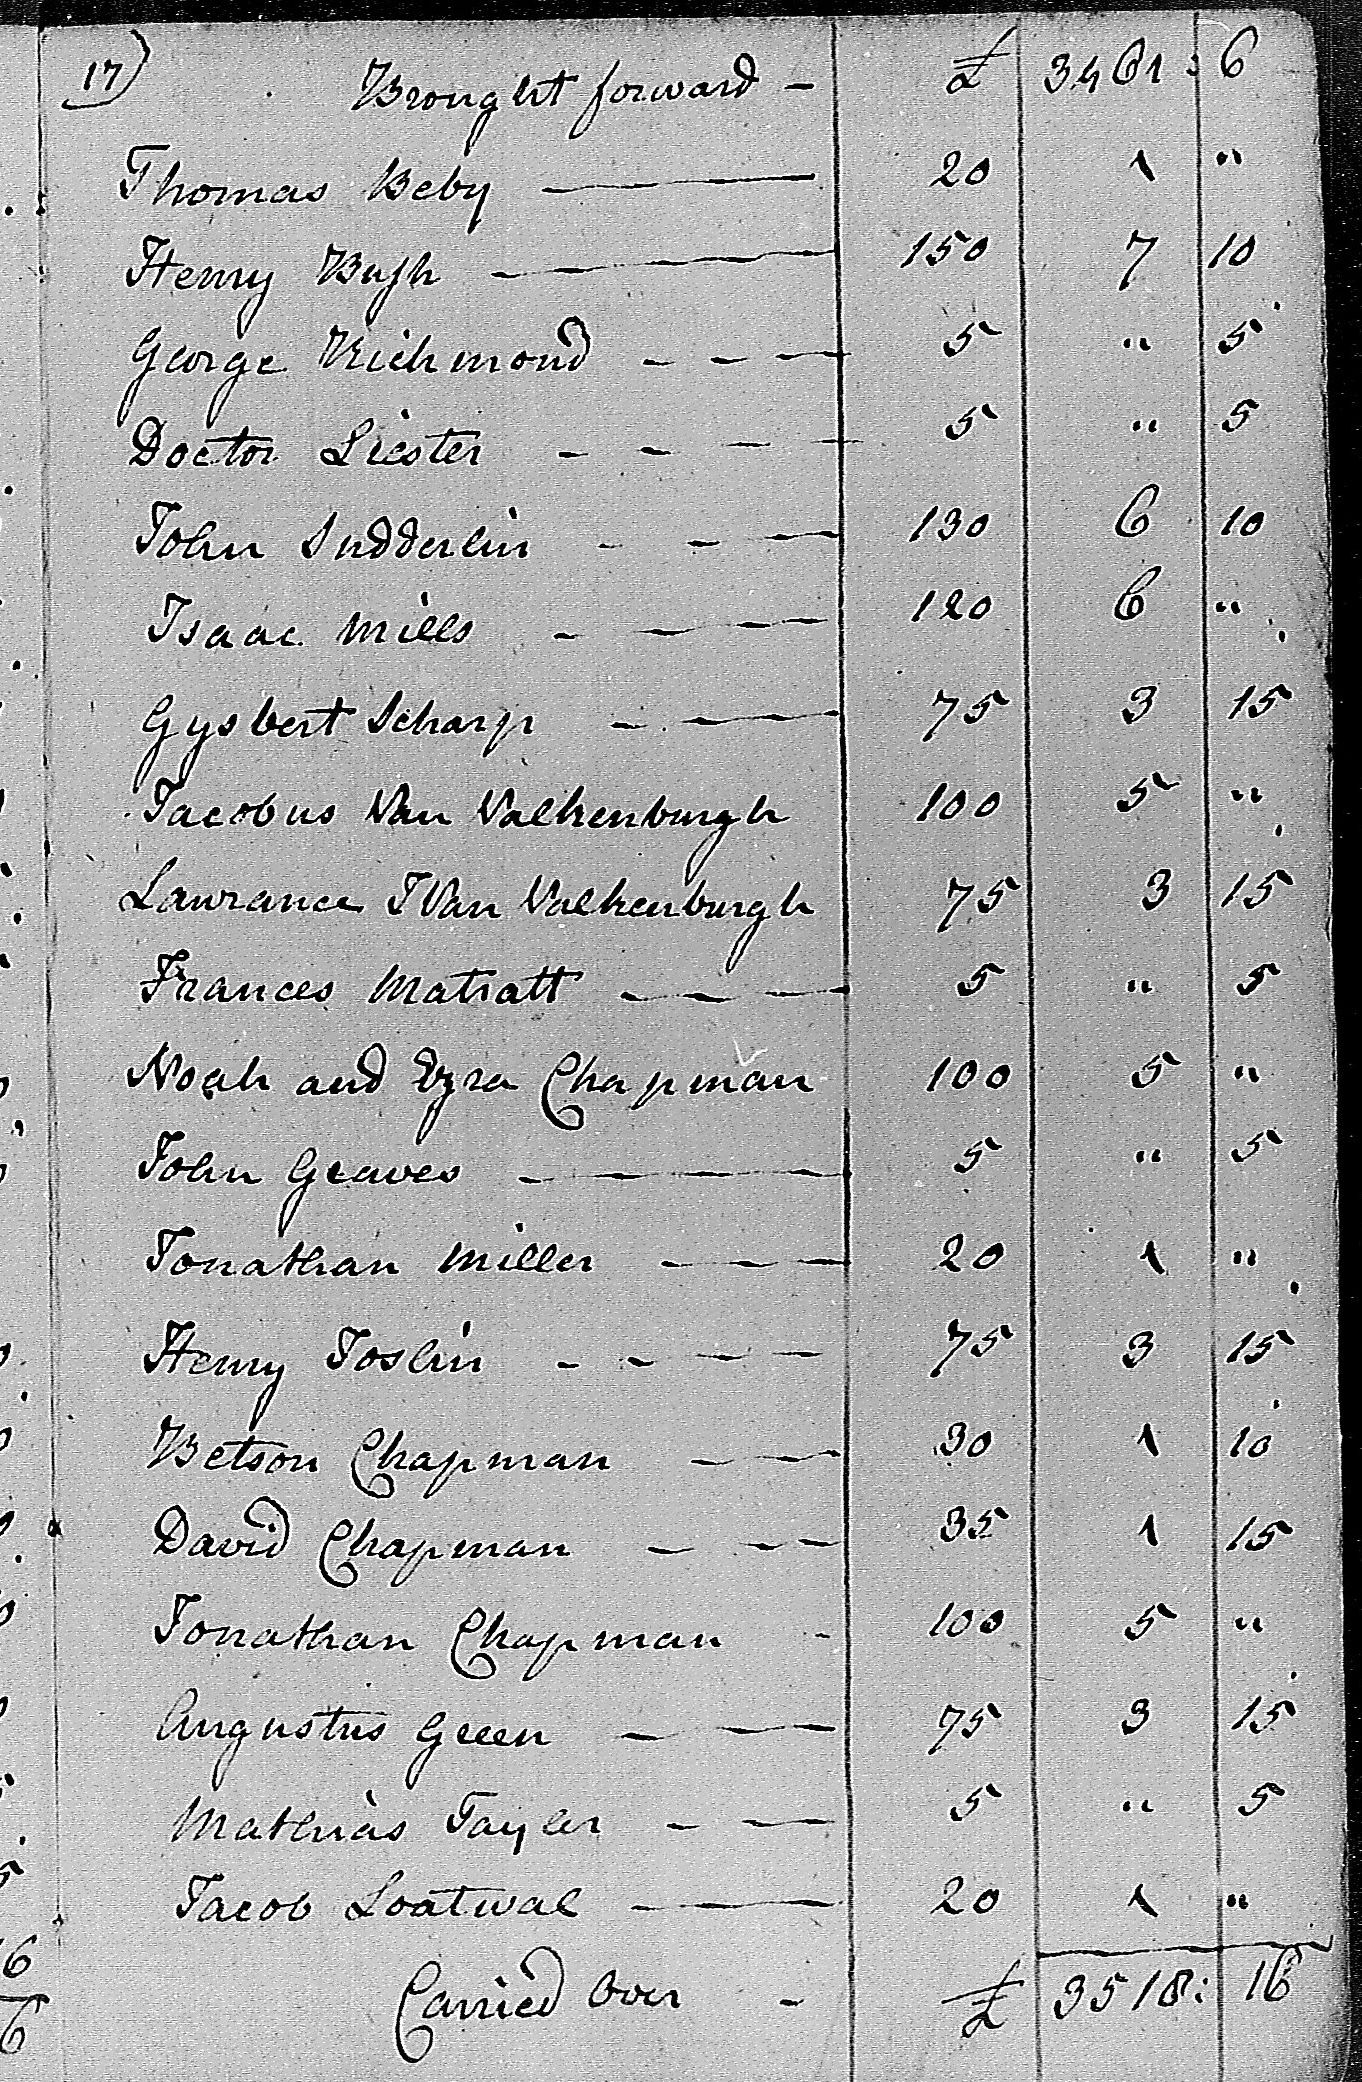 17) Brought forward - £ 3461 : 6
Thomas Beby 20 1 "
Henry Bush 150 7 10
George Richmond 5 " 5
Doctor Liester 5 " 5
John Sudderlin 130 6 10
Isaac Mills 120 6 "
Gysbert Scharp 75 3 15
Jacobus Van Valkenburgh 100 5 "
Lawrance J Van Valkenburgh 75 3 15
Frances Matratt 5 " 5
Noah and Ezra Chapman 100 5 "
John Graves 5 " 5
Jonathan Miller 20 1 "
Henry Joslin 75 3 15
Betson Chapman 30 1 10
David Chapman 35 1 15
Jonathan Chapman 100 5 "
Augustus Green 75 3 15
Mathias Tayler 5 " 5
Jacob Loatwal 20 1 "
Carried Over - £ 3518 : 16